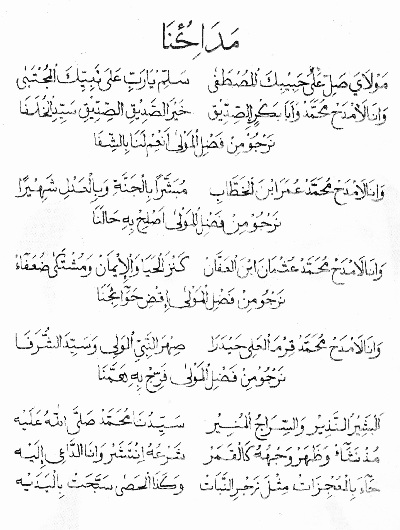 مَدَائِحُنَا
مَوْلَايَ صَلِّ عَلَى حَبِيبِكَ الْمُصْطَفَى سَلِّمْ يَارَبِّ عَلَى نَبِيِّكَ الْمُجْتَبَى
وَانَا لَامْدَحْ مُحَمَّدْ وَابَا بَكْرِ الصِّدِّيقْ خَيْرُ الصَّدِيقِ الصِّدِّيقِ سَيِّدِ الْخُلَفَا
نَرْجُوْ مِنْ فَضْلِ الْمَوْلَى أَنْعِمْ لَنَا بِالشِّفَا
وَانَا لَامْدَحْ مُحَمَّدْ عُمَرَ ابْنَ الْخَطَّابِ مُبَشَّرًا بِالْجَنَّةِ وَبِالْعَدْلِ شَهِيْرًا
نَرْجُوْ مِنْ فَضْلِ الْمَوْلَى اَصْلِحْ بِهِ حَالَنَا
وَانَا لَامْدَحْ مُحَمَّدْ عُثْمَانَ ابْنَ الْعَفَّانْ كَنْزَ الْحَيَا وَالْإِيمَانْ وَمُشْتَكَى ضُعَفَاءْ
نَرْجُوْ مِنْ فَضْلِ الْمَوْلَى اِقْضِ حَوَائِجَنَا
وَانَا لَامْدَحْ مُحَمَّدْ قَرْمَ الْعَلِي حَيْدَرَا صِهْرَ النَّبِيِّ الْوَلِي وَسَيِّدَ الشُّرَفَا
نَرْجُوْ مِنْ فَضْلِ الْمَوْلَى فَرِّجْ بِهِ هَمَّنَا
اَلْبَشِيْرُ النَّذِيْرْ وَالسِّرَاجُ الْمُنِيْرْ سَيِّدُنَا مُحَمَّدْ صَلَّى اللهُ عَلَيْهِ
مُذْ نَشَاءْ وَظَهَرْ وَجْهُهُ كَالْقَمَرْ شَرْعُهُ اِنْتَشَرْ وَانَا الدَّاعِي إِلَيْهِ
جَاءَ بِالْمُعْجِزَاتْ مِثْلَ نَرْجِرِ النَّبَاتْ وَكَذَا الْحَصَى سَبَّحَتْ بِالْيَدَيْهِ